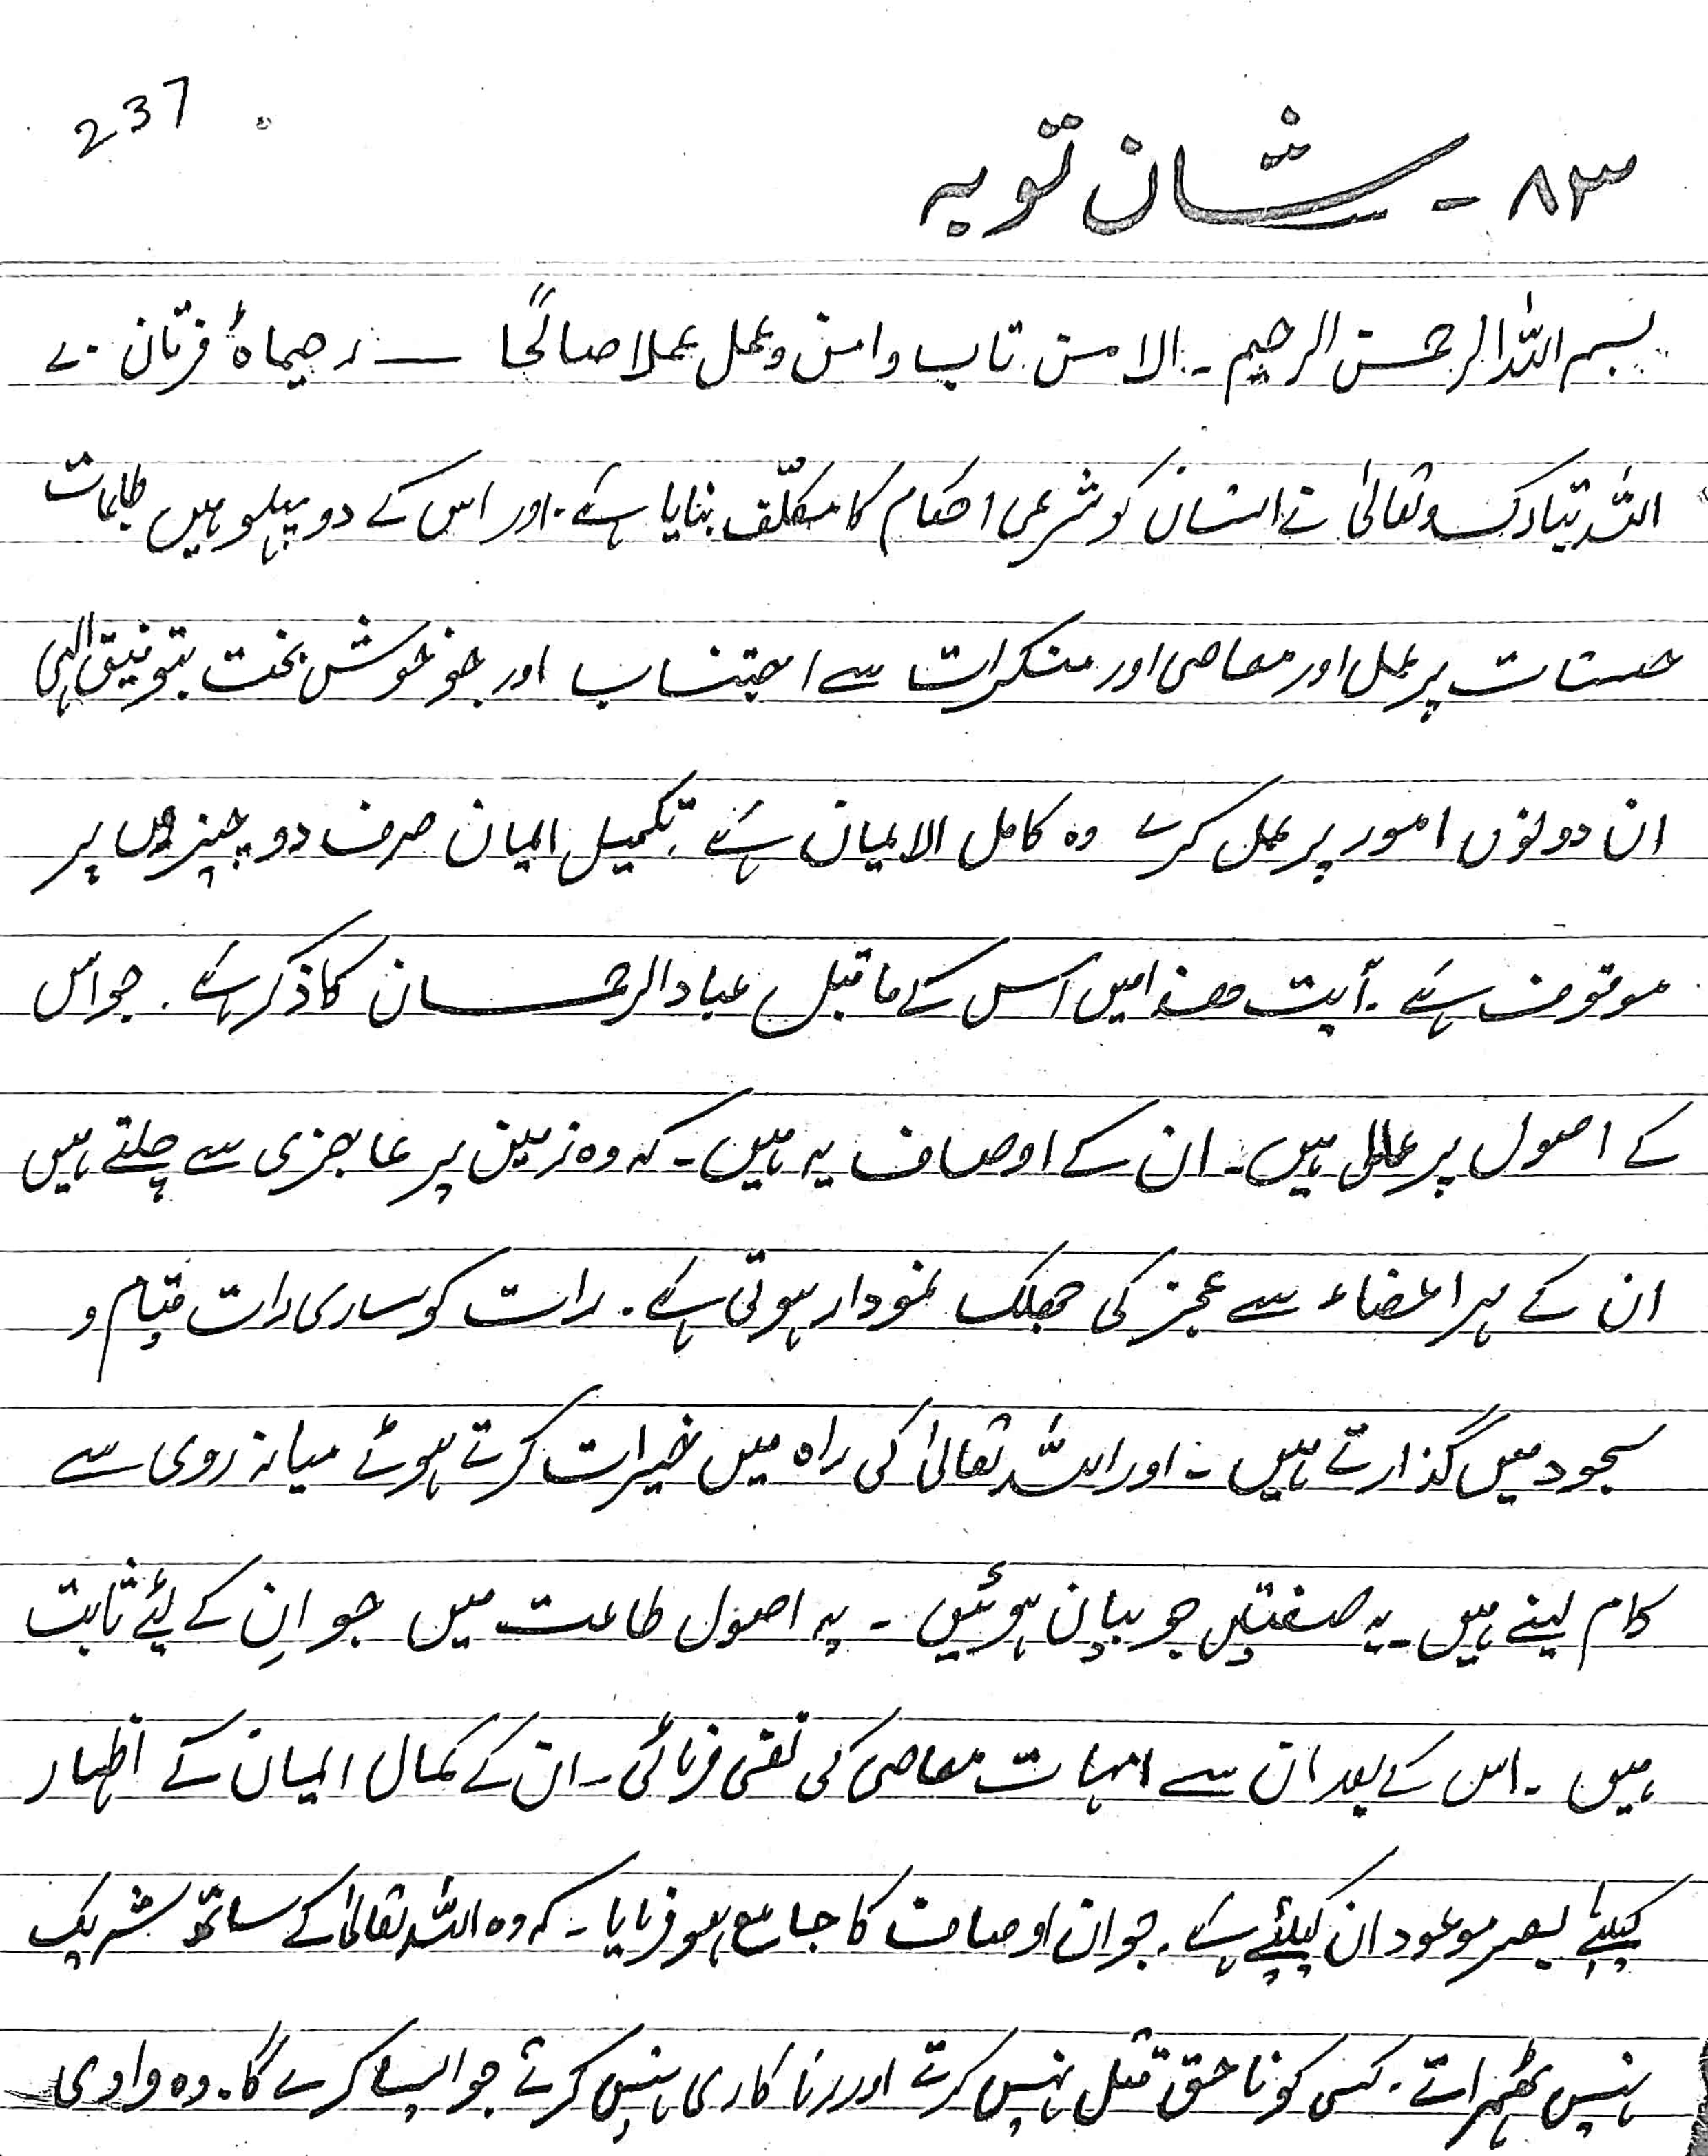 237
۸۳ - شان توبہ
بسم اللہ الرحمن الرحیم ۔ الا من تاب وامن وعمل عملا صالحًا — رحیماہ فرقان ۷۰
اللہ تبارک وتعالیٰ نے انسان کو شرعی احکام کا مکلّف بنایا ہے ۔ اور اس کے دو پہلو ہیں طاعات
حسنات پر عمل اور معاصی اور منکرات سے اجتناب اور جو خوش بخت بتوفیق الہی
ان دونوں امور پر عمل کرے وہ کامل الایمان ہے ۔ تکمیل ایمان صرف دو چیزوں پر
موقوف ہے ۔ آیت ھذا میں اس کے ماقبل عباد الرحمان کا ذکر ہے ۔ جو اس
کے اصول پر عامل ہیں ۔ ان کے اوصاف یہ ہیں ۔ کہ وہ زمین پر عاجزی سے چلتے ہیں
ان کے ہر اعضاء سے عجز کی جھلک نمودار ہوتی ہے ۔ رات کو ساری رات قیام و
سجود میں گذارتے ہیں ۔ اور اللہ تعالیٰ کی راہ میں خیرات کرتے ہوئے میانہ روی سے
کام لیتے ہیں ۔ یہ صفتیں جو بیان ہوئیں ۔ یہ اصول طاعت میں جو اِن کے لئے ثابت
ہیں ۔ اس کے بعد ان سے امہات معاصی کی نفی فرمائی ۔ ان کے کمال ایمان کے اظہار
کیلئے موعود ان کیلئے ہے ۔ جو ان اوصاف کا جامع ہو فرمایا ۔ کہ وہ اللہ تعالیٰ کے ساتھ شریک
نہیں ٹھہراتے ۔ کسی کو ناحق قتل نہیں کرتے اور زنا کاری نہیں کرتے جو ایسا کرے گا ۔ وہ وادی